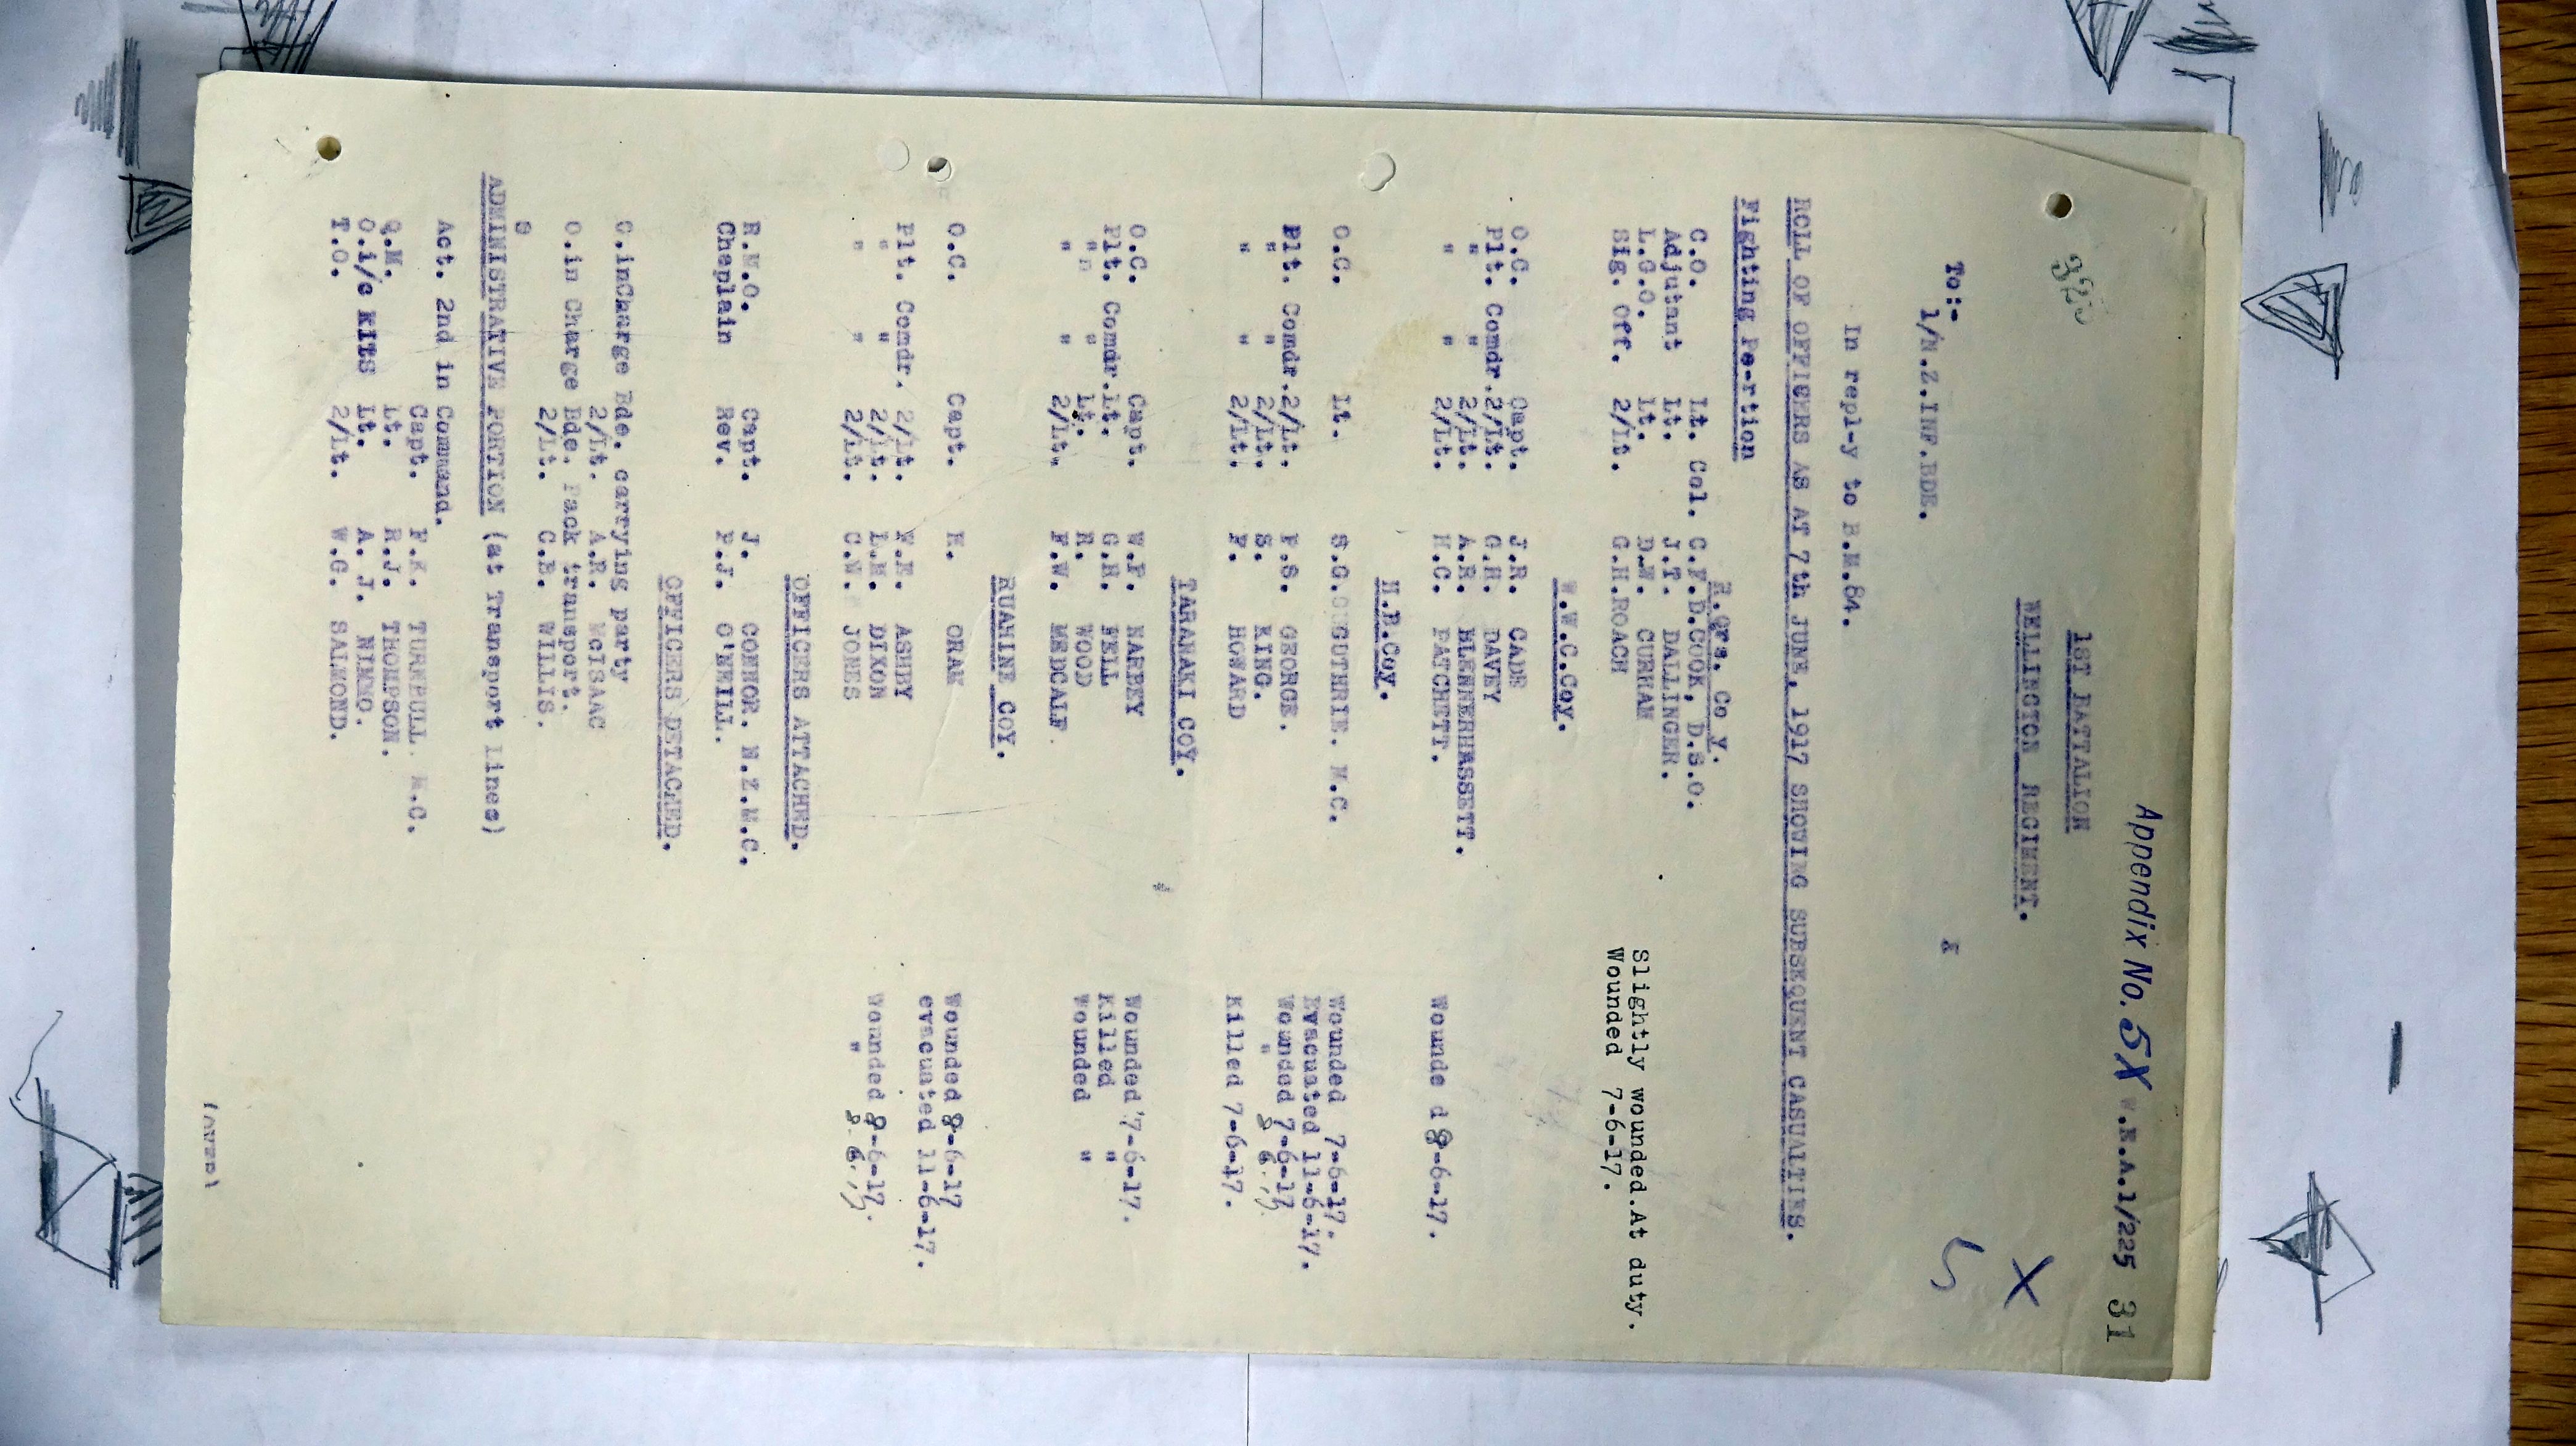 Appendix No. 5X W.E.A.1/225 31
1ST BATTALION
325
WELLINGTON REGIMENT.
X
5
To:-
1/N.Z.INF.BDE.
In repl-y to B.M.84.
ROLL OF OFFICERS AS AT 7th JUNE, 1917 SHOWING SUBSEQUENT CASUALTIES.
Fighting Po-rtion
H.Qrs. Co y.
C.O. Lt. Col. C.F.D.COOK, D.S.O.
Adjutant Lt. J.T. DALLINGER.
L.G.O. Lt. D.W. CURHAM Slightly wounded.At duty.
Sig. Off. 2/Lt. G.H.ROACH Wounded 7-6-17.
W.W.C.Coy.
O.C. Capt. J.R. CADE
Plt. Comdr.2/Lt. G.H. DAVEY
" " 2/Lt. A.R. BLENNERHASSETT.
" " 2/Lt. H.C. PATCHETT. Wounde d 8-6-17.
H.B.Coy.
O.C. Lt. S.G. GUTHRIE. M.C. Wounded 7-6-17.
Evacuated 11-6-17.
Plt. Comdr.2/Lt. F.S. GEORGE. Wounded 7-6-17
" " 2/Lt. S. KING. " 8.6.17
" " 2/Lt. P. HOWARD Killed 7-6-17.
TARANAKI COY.
O.C. Capt. W.F. NARBEY Wounded 7-6-17.
Plt. Comdr.Lt. G.H. FELL Killed "
" " Lt. R. WOOD Wounded "
" " 2/Lt. F.W. MEDCALF
RUAHINE COY.
O.C. Capt. H. ORAM Wounded 8-6-17
evacuated 11-6-17.
Plt. Comdr. 2/Lt. F.E. ASHBY
" " 2/Lt. L.H. DIXON Wounded 8-6-17.
" " 2/Lt. C.N. JONES " 8.6.17
OFFICERS ATTACHED.
R.M.O. Capt. J. CONNOR. N.Z.M.C.
Cheplain Rev. P.J. O'NEILL.
OFFICERS DETACHED.
O.inCharge Bde. carrying party
2/Lt. A.R. McISAAC
O.in Charge Bde. Pack transport.
2/Lt. C.B. WILLIS.
S
ADMINISTRATIVE PORTION (at Transport Lines)
Act. 2nd in Command.
Capt. F.K. TURNBULL M.C.
Q.M. Lt. R.J. THOMPSON.
O.i/c KITS Lt. A. J. NIMMO.
T.O. 2/Lt. W.G. SALMOND.
(OVER)